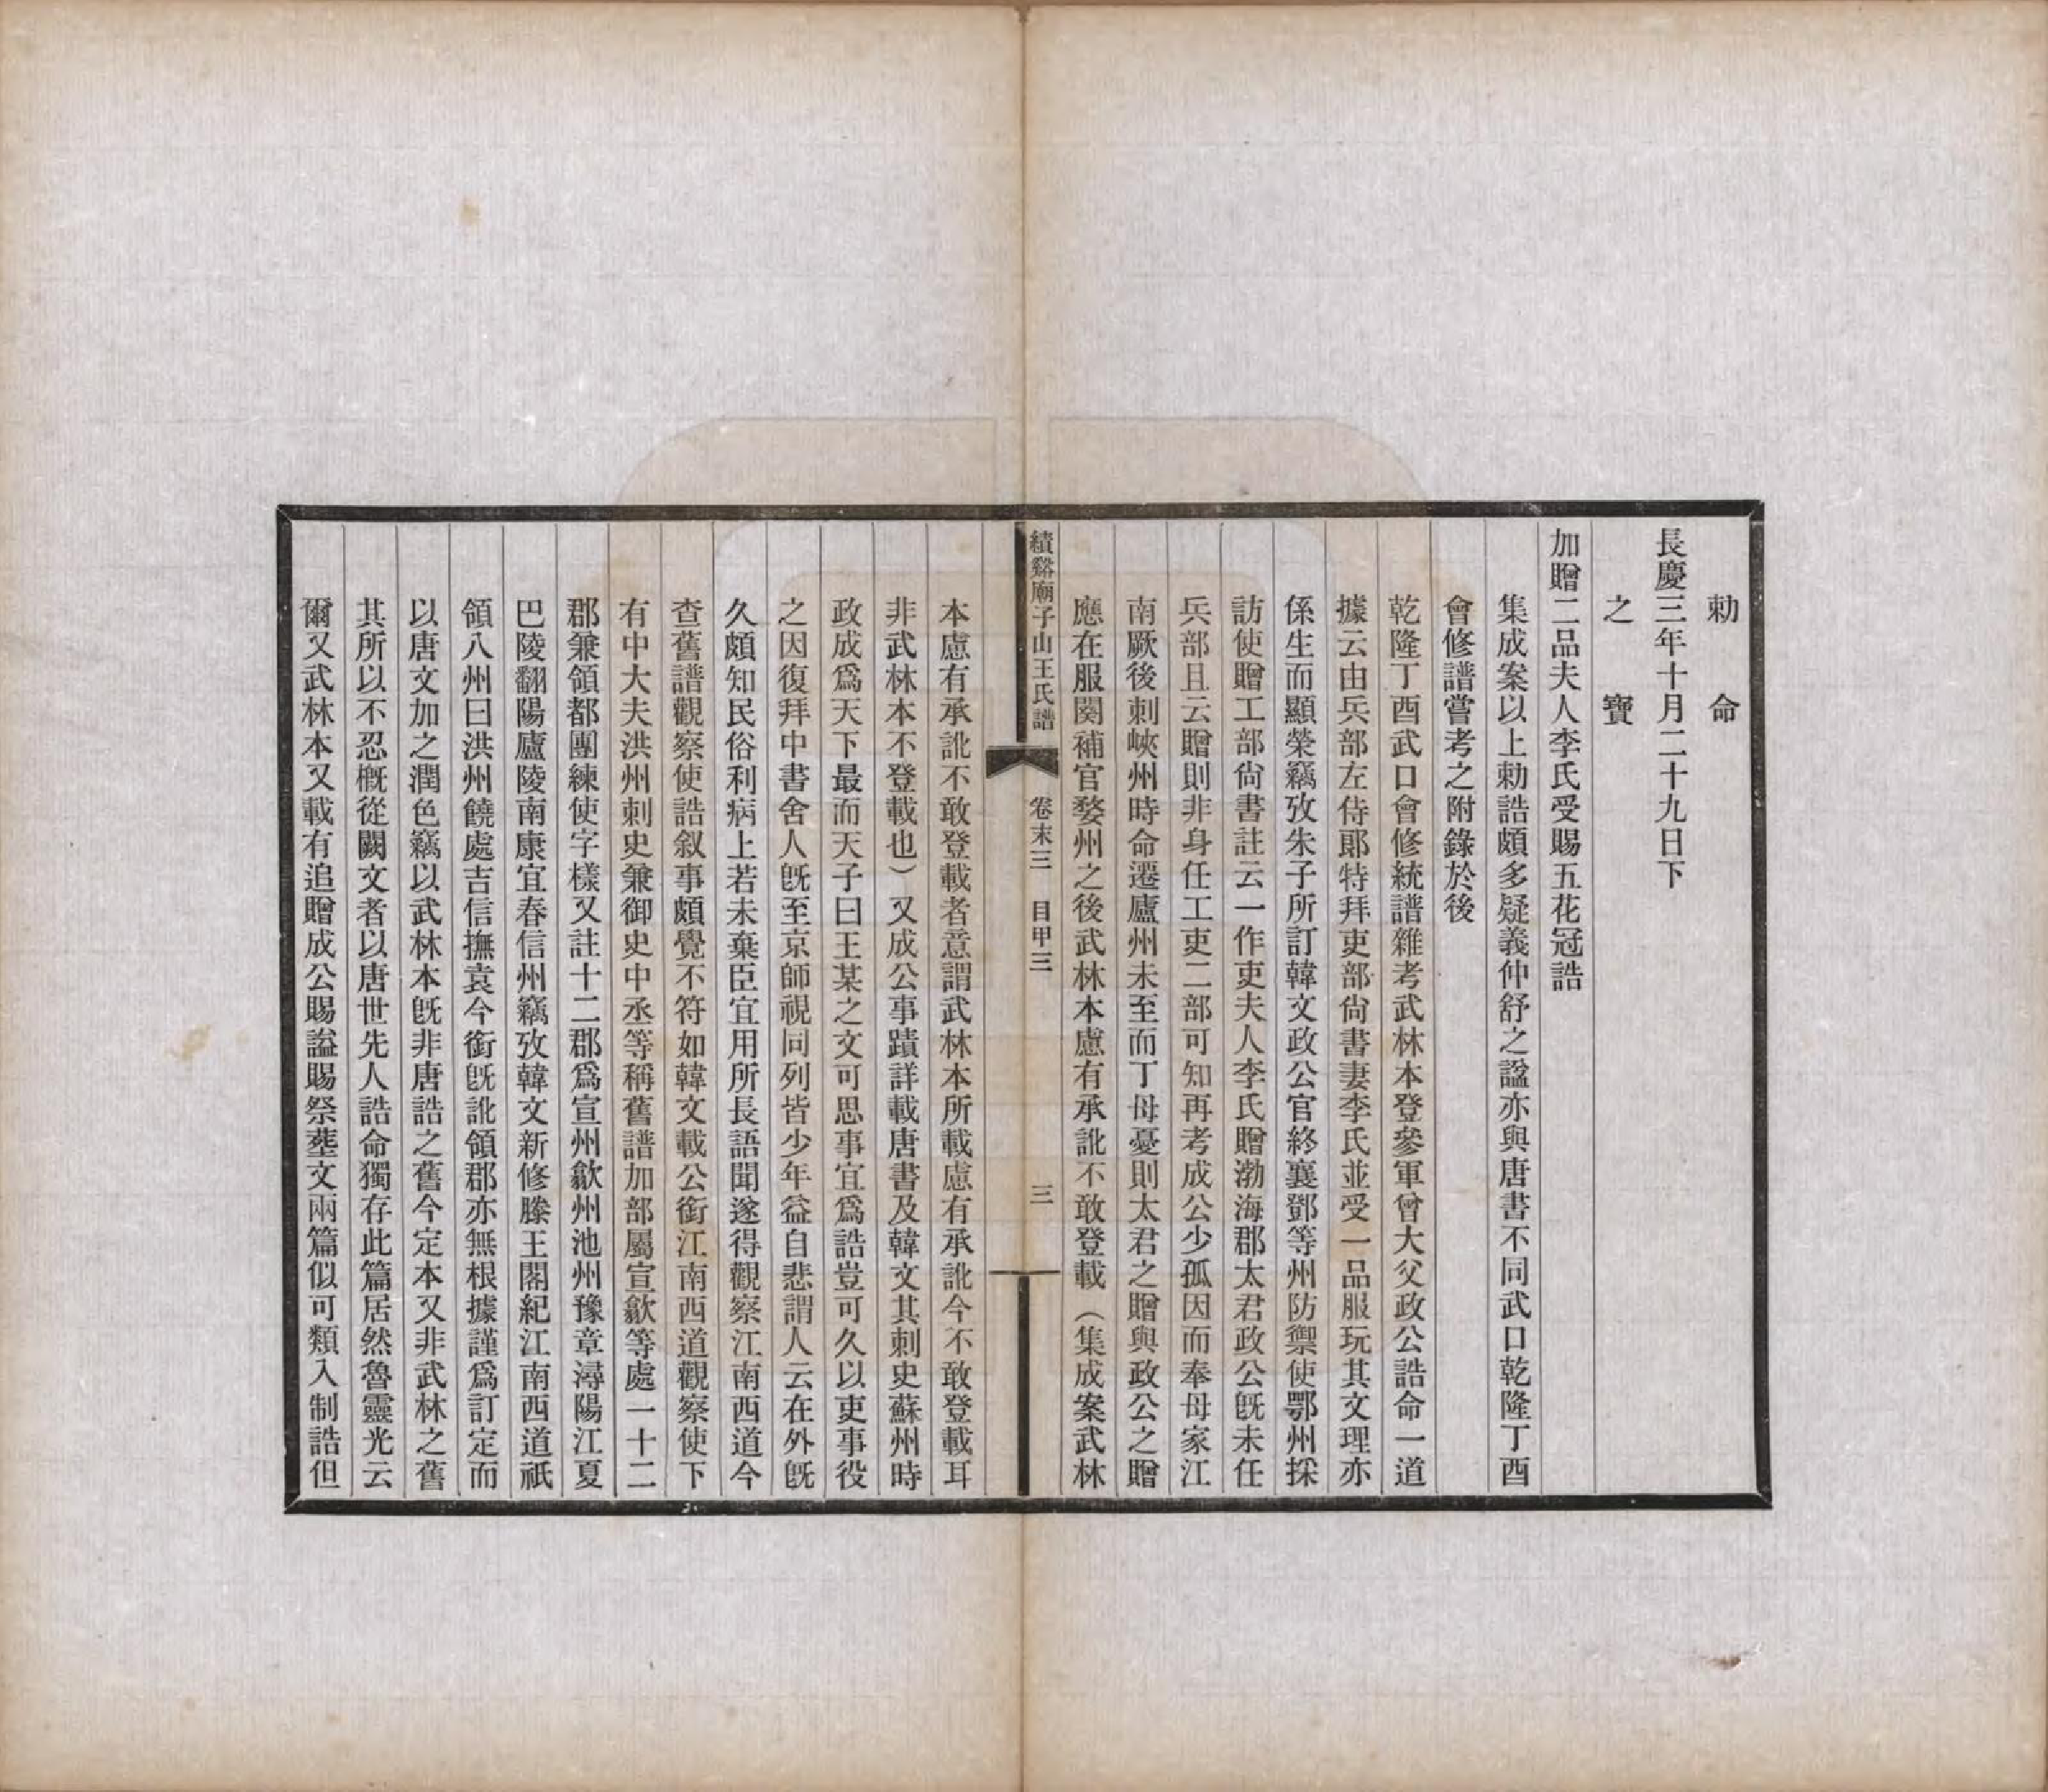 勅命
長慶三年十月二十九日下
之寶
加贈二品夫人李氏受賜五花冠誥
集成案以上勅誥頗多疑義仲舒之諡亦與唐書不同武口乾隆丁酉
會修譜嘗考之附錄於後
乾隆丁酉武口會修統譜雜考武林本登參軍曾大父政公誥命一道
據云由兵部左侍郞特拜吏部尙書妻李氏並受一品服玩其文理亦
係生而顯榮竊攷朱子所訂韓文政公官終襄鄧等州防禦使鄂州採
訪使贈工部尙書註云一作吏夫人李氏贈渤海郡太君政公旣未任
兵部且云贈則非身任工吏二部可知再考成公少孤因而奉母家江
南厥後刺峽州時命遷廬州未至而丁母憂則太君之贈與政公之贈
應在服闋補官婺州之後武林本慮有承訛不敢登載（集成案武林
績谿廟子山王氏譜
卷末三　目甲三
三
本慮有承訛不敢登載者意謂武林本所載慮有承訛今不敢登載耳
非武林本不登載也）又成公事蹟詳載唐書及韓文其刺史蘇州時
政成爲天下最而天子曰王某之文可思事宜爲誥豈可久以吏事役
之因復拜中書舍人旣至京師視同列皆少年益自悲謂人云在外旣
久頗知民俗利病上若未棄臣宜用所長語聞遂得觀察江南西道今
查舊譜觀察使誥叙事頗覺不符如韓文載公銜江南西道觀察使下
有中大夫洪州刺史兼御史中丞等稱舊譜加部屬宣歙等處一十二
郡兼領都團練使字樣又註十二郡爲宣州歙州池州豫章潯陽江夏
巴陵翻陽廬陵南康宜春信州竊攷韓文新修滕王閣紀江南西道祇
領八州曰洪州饒處吉信撫袁今銜旣訛領郡亦無根據謹爲訂定而
以唐文加之潤色竊以武林本旣非唐誥之舊今定本又非武林之舊
其所以不忍槪從闕文者以唐世先人誥命獨存此篇居然魯靈光云
爾又武林本又載有追贈成公賜諡賜祭塟文兩篇似可類入制誥但